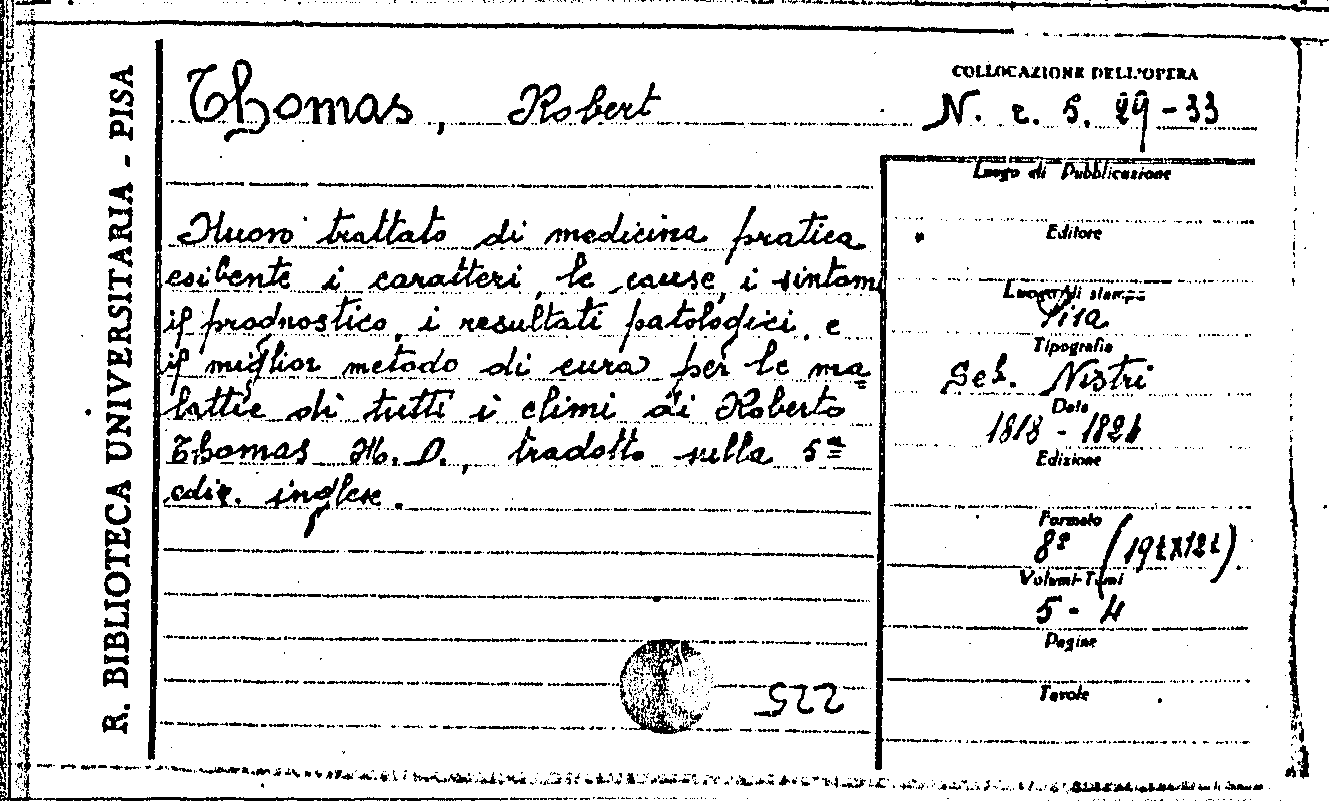 R. BIBLIOTECA UNIVERSITARIA - PISA
Thomas, Robert
Nuovo trattato di medicina pratica
esibente i caratteri, le cause, i sintomi
il prognostico, i resultati patologici, e
il miglior metodo di cura per le ma=
lattie di tutti i climi di Roberto
Thomas M. D., tradotto sulla 5ª
ediz. inglese.
225
COLLOCAZIONE DELL'OPERA
N. r. 5. 29-33
Luogo di Pubblicazione
Editore
Luogo di stampa
Pisa
Tipografia
Seb. Nistri
Data
1818 - 1821
Edizione
Formato
8º
Volumi-Tomi
5 - 4
Pagine
Tavole